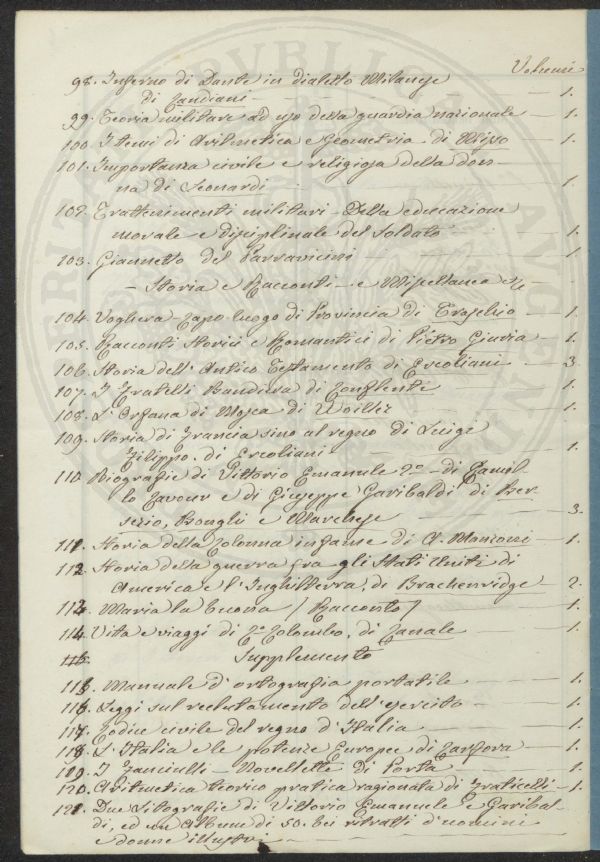 Volumi
98. Inferno di Dante in dialetto Milanese
di Candiani — 1.
99. Teoria militare ad uso della guardia nazionale — 1.
100. I temi di Aritmetica e Geometria di — 1.
101. Importanza civile e religiosa della don-
na di Leonardi — 1.
102. Trattenimenti militari - Della educazione
morale e disciplinale del Soldato — 1.
103. Giannetto del Parravicini — 1.
— Storia e Racconti — e Miscellanea &
104. Voghera - Capo luogo di Provincia di — 1.
105. Racconti Storici e Romantici di Pietro Giuria — 1.
106. Storia dell' Antico Testamento di Ercoliani — 3.
107. I Fratelli Bandiera di — 1.
108. L' Orfana di Mosca di Woillez — 1.
109. Storia di Francia sino al regno di Luigi
Filippo, di Ercoliani — 1.
110. Biografie di Vittorio Emanule 2º - di Camil-
lo Cavour e di Giuseppe Garibaldi di Ber-
sezio, Bonghi e Marchese — 3.
111. Storia della Colonna infame di A. Manzoni — 1.
112. Storia della guerra fra gli Stati Uniti di
America e l' Inghilterra, di Brackenridge — 2.
113. Maria la / Racconto / — 1.
114. Vita e viaggi di Cº Colombo, di Canale — 1.
Supplemento
115. Manuale d' ortografia portatile — 1.
116. Leggi sul reclutamento dell' esercito — 1.
117. Codice civile del regno d' Italia — 1.
118. L' Italia e le potenze Europee di — 1.
119. I Fanciulli - Novellette di Porta — 1.
120. Aritmetica teorico pratica ragionata di Fraticelli — 1.
121. Due Litografie di Vittorio Emanuele e Garibal-
di, ed un Album di 50. bei ritratti d' uomini
e donne illustri —